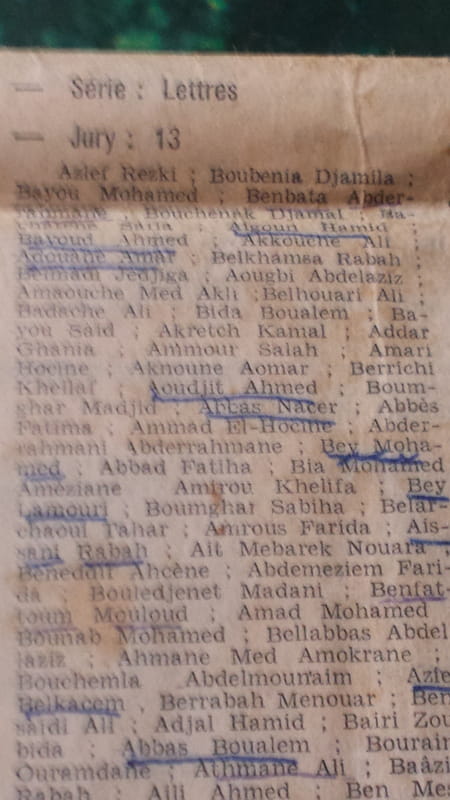 — Série : Lettres
— Jury : 13
Azief Rezki ; Boubenia Djamila ;
Bayou Mohamed ; Benbata Abder-
rahmane ; Bouchenak Djamal ; Ba-
Algoun Hamid
Bayoud Ahmed ; Akkouche Ali
Adouane Amar ; Belkhamsa Rabah ;
Bennadi Jedjiga ; Aougbi Abdelaziz ;
Amaouche Med Akli ;Belhouari Ali ;
Badache Ali ; Bida Boualem ; Ba-
you Said ; Akretch Kamal ; Addar
Ghania ; Ammour Salah ; Amari
Hocine ; Aknoune Aomar ; Berrichi
Khellaf ; Aoudjit Ahmed ; Boum-
ghar Madjid ; Abbas Nacer ; Abbès
Fatima ; Ammad El-Hocine ; Abder-
rahmani Abderrahmane ; Bey Moha-
med ; Abbad Fatiha ; Bia Mohamed
Améziane Amirou Khelifa ; Bey
Lamouri ; Boumghar Sabiha ; Belar-
chaoui Tahar ; Amrous Farida ; Ais-
sani Rabah ; Ait Mebarek Nouara ;
Beneddif Ahcène ; Abdemeziem Fari-
da ; Bouledjenet Madani ; Benfat-
toum Mouloud ; Amad Mohamed
Bounab Mohamed ; Bellabbas Abdel
laziz ; Ahmane Med Amokrane ;
Bouchemla Abdelmoun'aim ; Azie
Belkacem , Berrabah Menouar ; Ben
saidi Ali ; Adjal Hamid ; Bairi Zou
bida ; Abbas Boualem ; Bourair
Ouramdane ; Athmane Ali ; Baâzi
Rabah ; Aili Ahmed ; Ben Mes